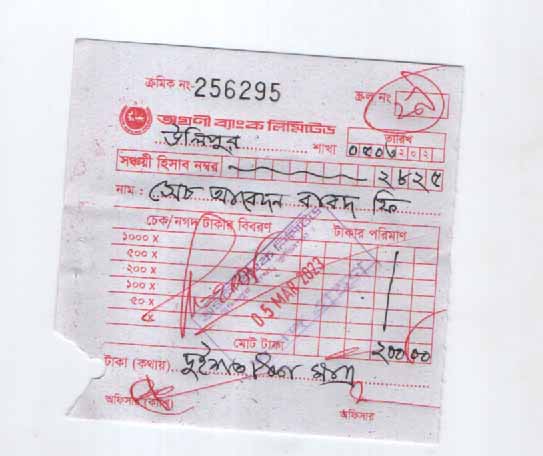 ক্রমিক নং-256295
স্ক্রল নং
অগ্রণী ব্যাংক লিমিটেড
উলিপুর শাখা
তারিখ
সঞ্চয়ী হিসাব নম্বর ২৪২৫
নাম : সেচ আবেদন বাবদ ফি
চেক/নগদ টাকার বিবরণ টাকার পরিমাণ
১০০০ X
৫০০ X
২০০ X
১০০ X
৫০ X
05 MAR 2023
মোট টাকা ২০০/00
টাকা (কথায়) দুইশত টাকা মাত্র
অফিসার (ক্যাশ) অফিসার